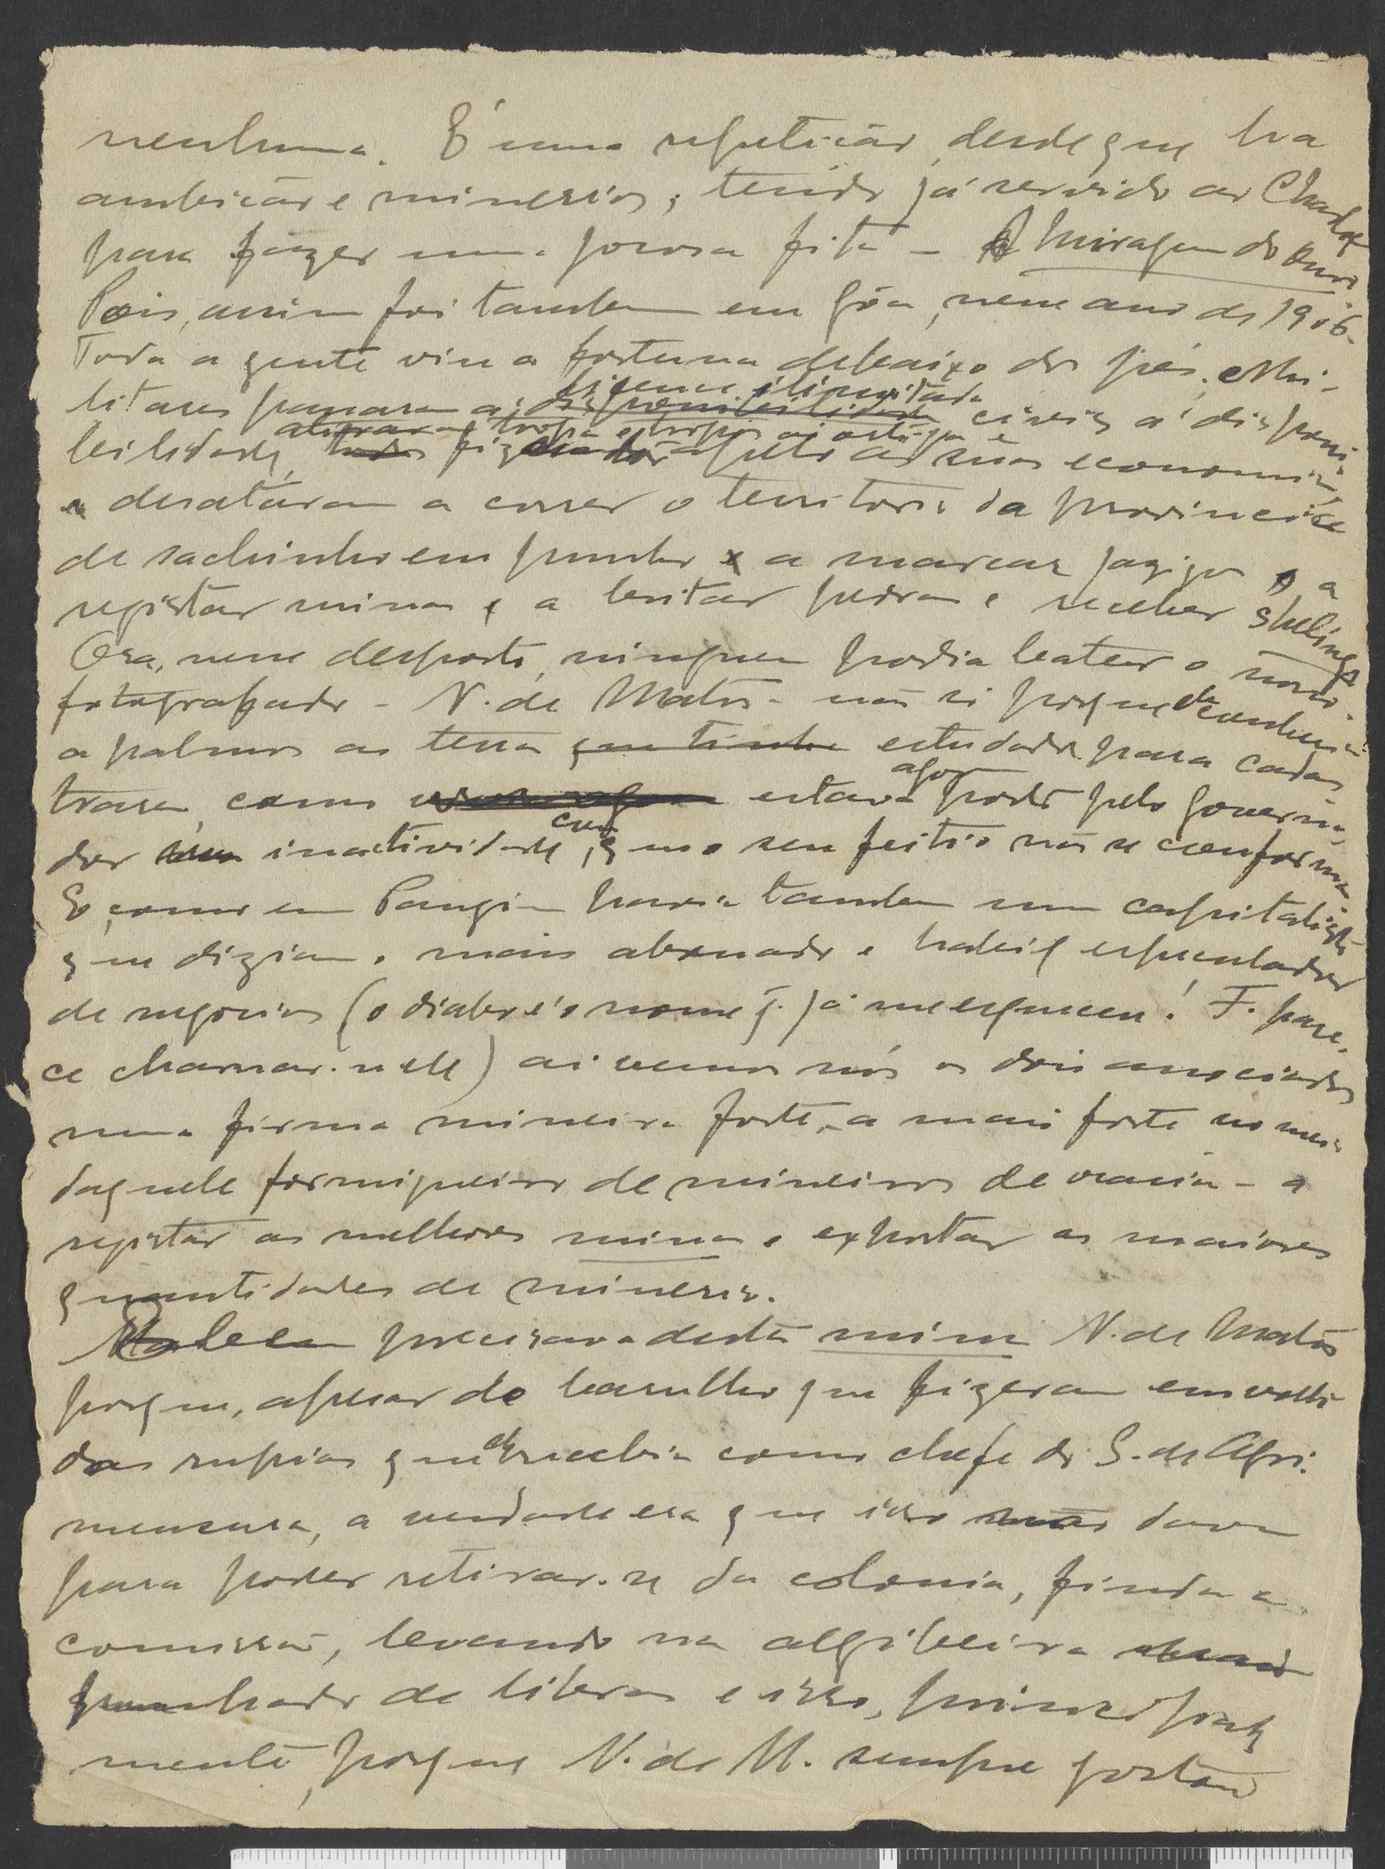 nenhuma. É uma repetição, desde que ha
ambição e minerios; tendo já servido ao Charlot
para fazer uma jocosa fita - A Miragem do Ouro
Pois, assim foi tambem em Gôa, nesse ano de 1906.
Toda a gente viu a fortuna debaixo dos pés. Mi-
licença ilimitada
litares passaram a disponibilidade civis á disponi-
bilidade, todos fizeram apelo ás suas economias
e desataram a correr o territorio da provincia
de sachinho em punho e a marcar jazigos, a
registar minas e a britar pedra e receber shelings
Ora, nesse desporto, ninguem podia bater o nosso
fotografado - N. de Matos - não só porque ele conhecia
a palmos as terras que tinha estudado para cadas-
agora
trar, como estava posto pelo governa-
com
dor inactividade, q o seu feitio não se conforma
E, como em Pangim havia tambem um capitalista
que diziam o mais abonado e habil especulador
de negocios (o diabo é o nome q. já me esqueceu! F. pare-
ce chamar-se ele) ai vemos nós os dois associados
numa firma mineira forte, a mais forte no meio
daquele formigueiro de mineiros de ocasião - a
registar as melhores minas e exportar as maiores
quantidades de minerio.
precisava desta mina N. de Matos
porque, apesar do barulho que fizeram em volta
das rupias que ele recebia como chefe do S. de Agri-
mensura, a verdade era que isso não dava
para poder retirar-se da colonia, finda a
comissão, levando na algibeira
punhado de libras e isso, principal-
mente, porque N. de M. sempre gostou